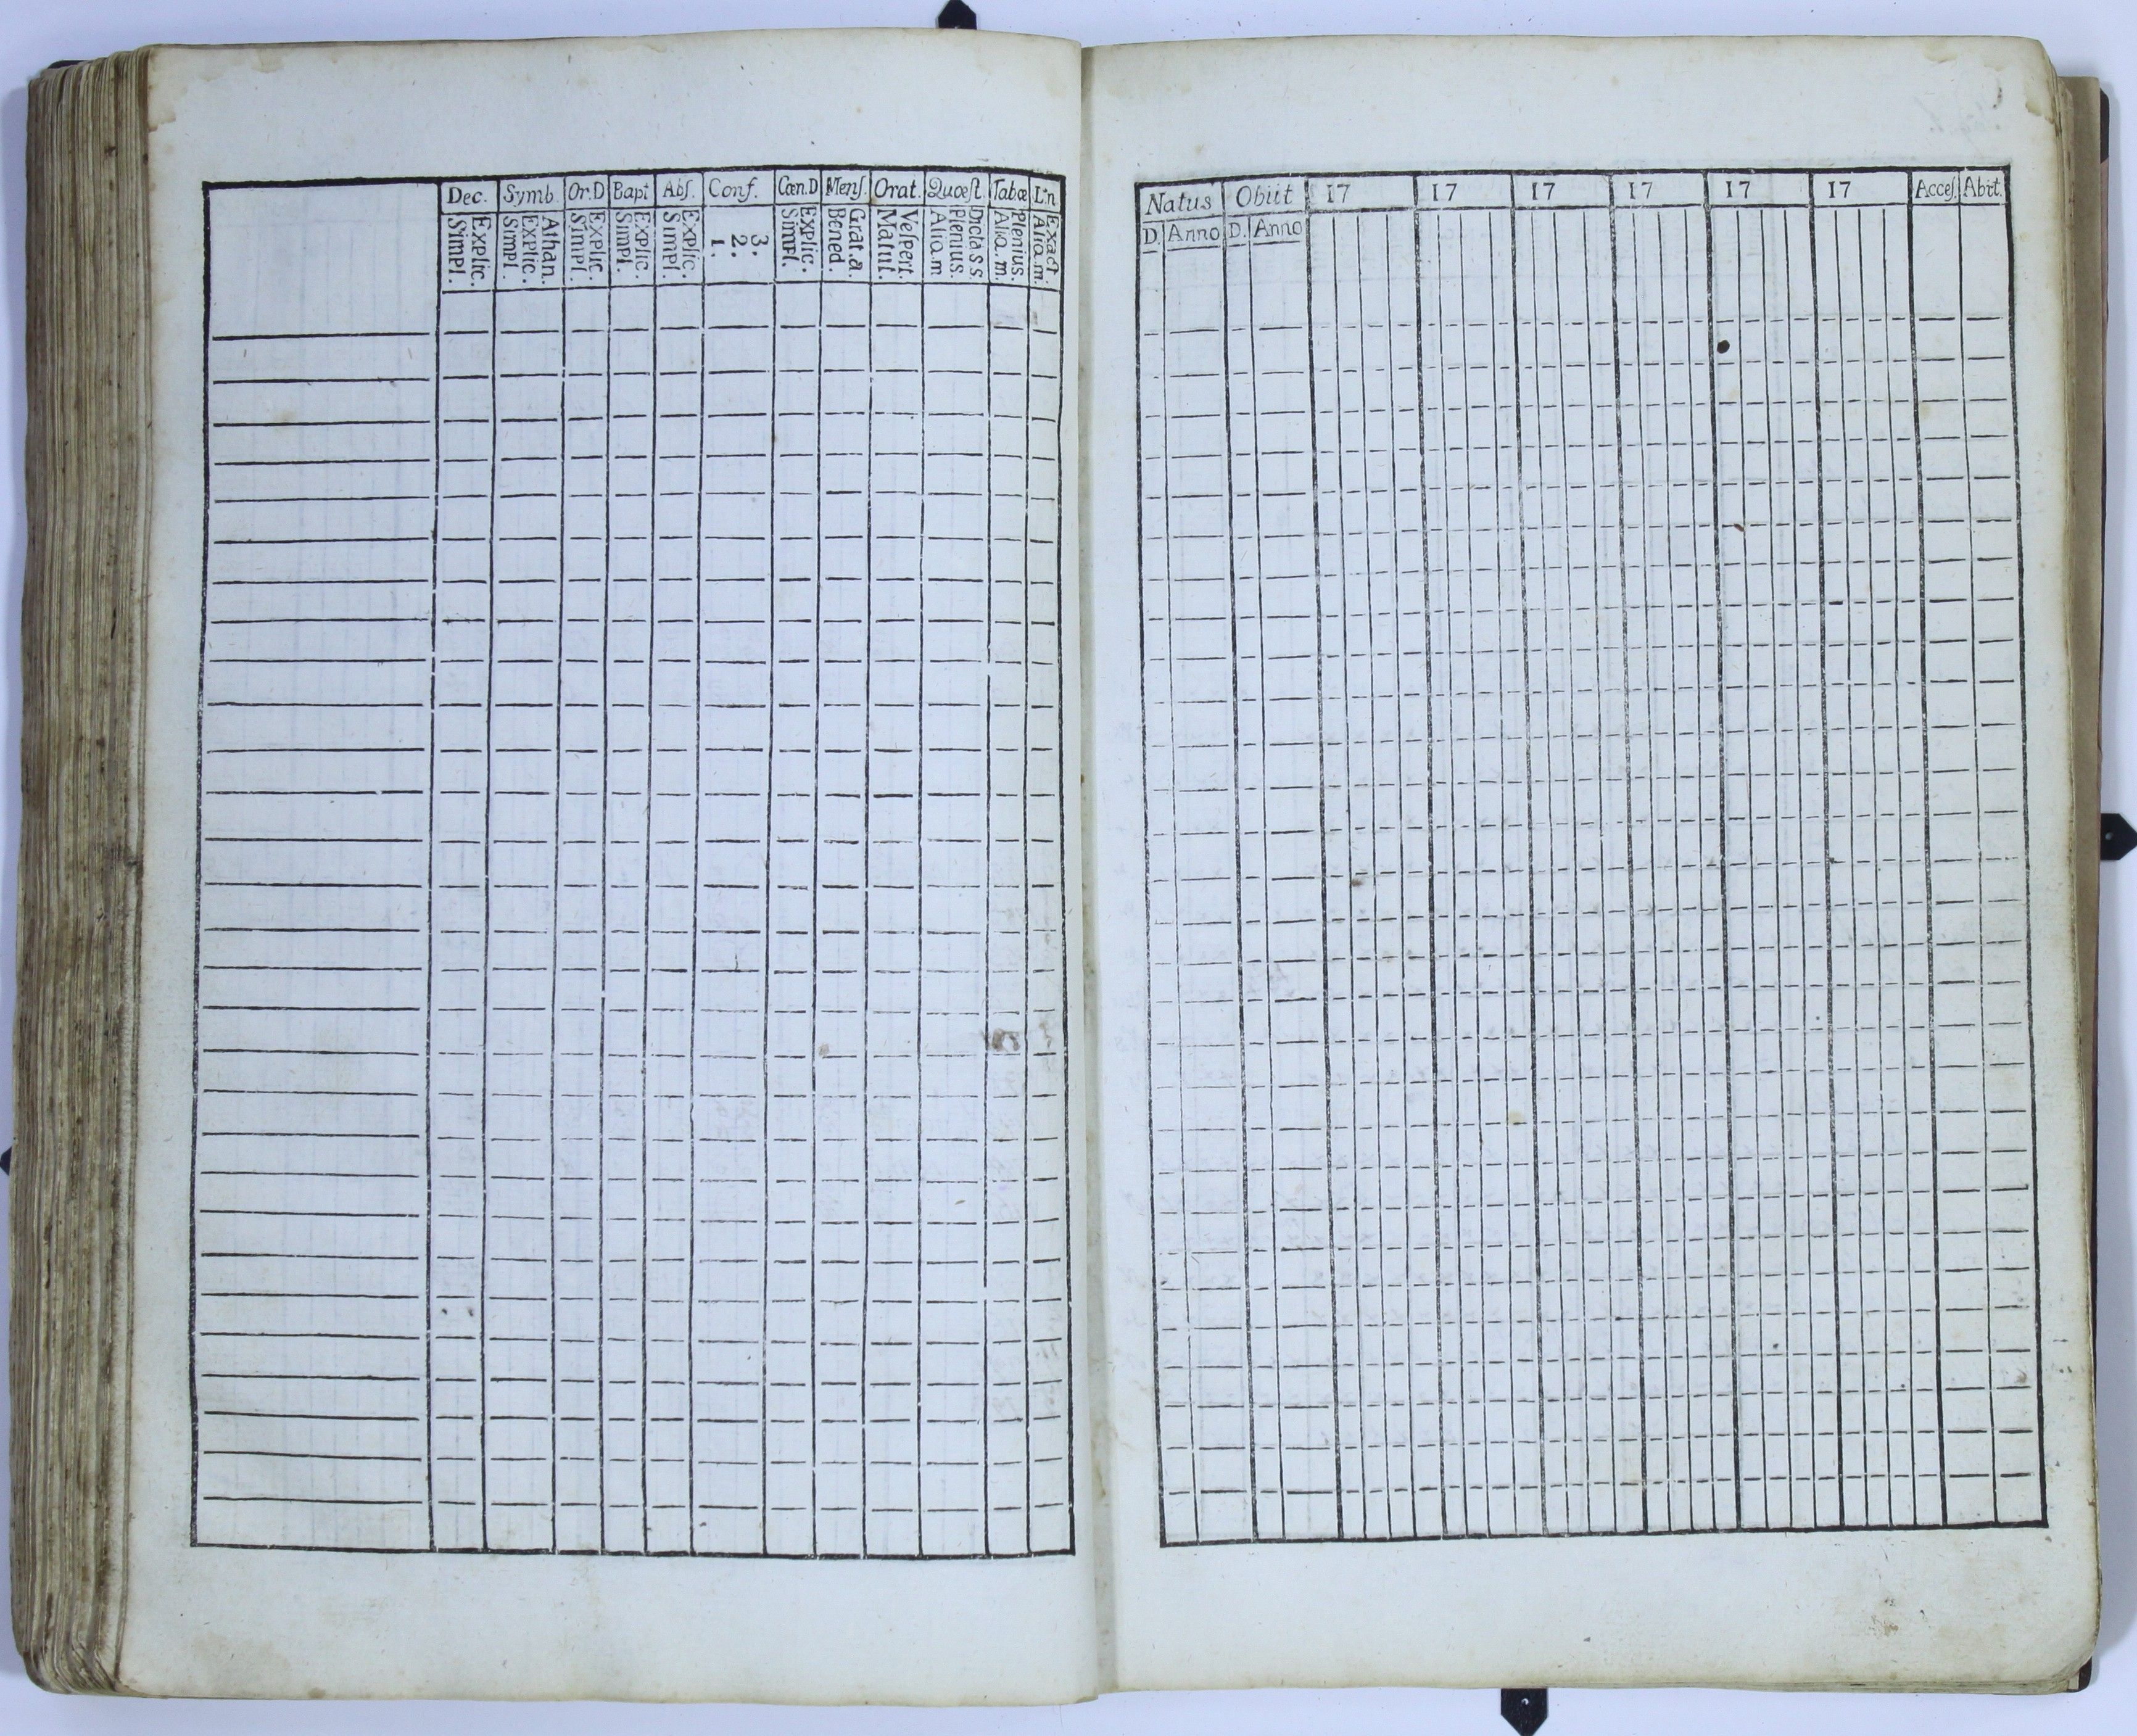 Dec. Symb. Or.D Bapt Abſ. Conf. Cœn.D Menſ. Orat. Quœſt. Tabœ L:n
Explic.
Simpl.
Athan.
Explic.
Simpl.
Explic.
Simpl.
Explic.
Simpl.
Explic.
Simpl.
3.
2.
1.
Explic.
Simpl.
Grat.a
Bened.
Veſpert.
Matut.
Dicta s s
Plenius.
Aliq.m
Plenius.
Aliq.m.
Exact
Aliq.m.
Natus Obiit 17 17 17 17 17 17 Acceſ. Abit.
D. Anno D. Anno